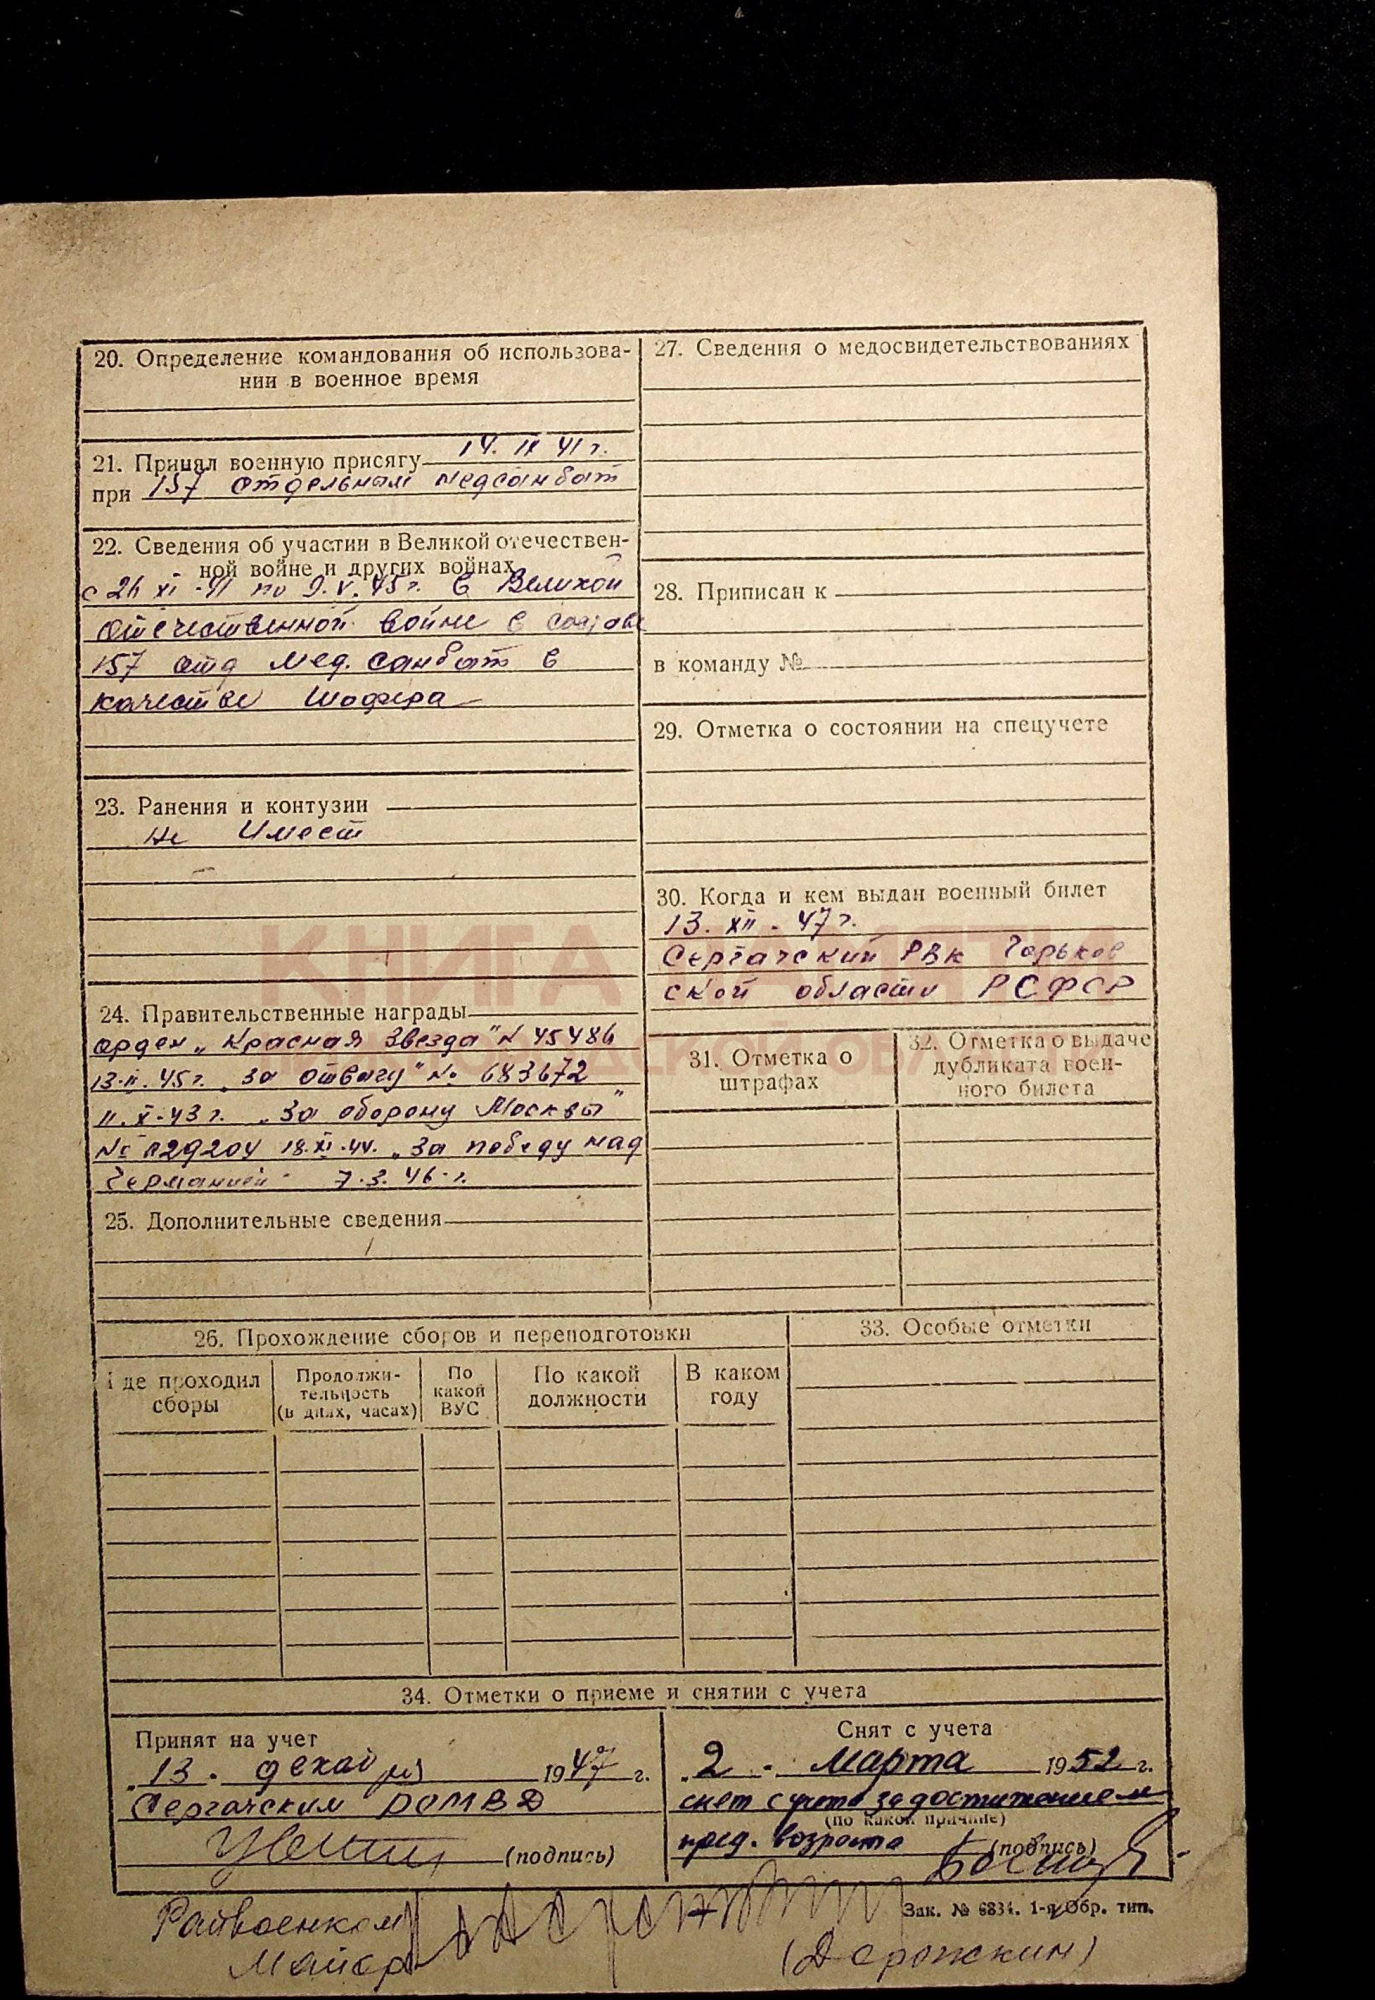 20. Определение командования об использова-
нии в военное время
21. Принял военную присягу 14. IX 41 г.
при 157 отдельном медсанбат
22. Сведения об участии в Великой отечествен-
ной войне и других войнах
с 26 XI - 41 по 9. V. 45 г. в Великой
отечественной войне в составе
157 отд мед. санбат в
качестве шофера
23. Ранения и контузии
не имеет
24. Правительственные награды
орден „Красная Звезда" N 45486
13.II.45 г. „За отвагу" № 683672
11.X-43 г. „За оборону Москвы"
№ 029204 18.XI-44. „За победу над
Германией" 7.3.46 г.
25. Дополнительные сведения
26. Прохождение сборов и переподготовки
Где проходил
сборы
Продолжи-
тельность
(в днях, часах)
По
какой
ВУС
По какой
должности
В каком
году
27. Сведения о медосвидетельствованиях
28. Приписан к
в команду №
29. Отметка о состоянии на спецучете
30. Когда и кем выдан военный билет
13. XII - 47 г.
Сергачский РВК Горьков
ской области РСФСР
31. Отметка о
штрафах
32. Отметка о выдаче
дубликата воен-
ного билета
33. Особые отметки
34. Отметки о приеме и снятии с учета
Принят на учет
„13" декабря 1947 г.
Сергачским РОМВД
(подпись)
Снят с учета
„2" марта 1952 г.
снят с учета за достижением
(по какой причине)
пред. возраста (подпись)
Зак. № 6834. 1-я Обр. тип.
Райвоенком
Майор (Дорожкин)
КНИГА ПАМЯТИ
НИЖЕГОРОДСКОЙ ОБЛАСТИ